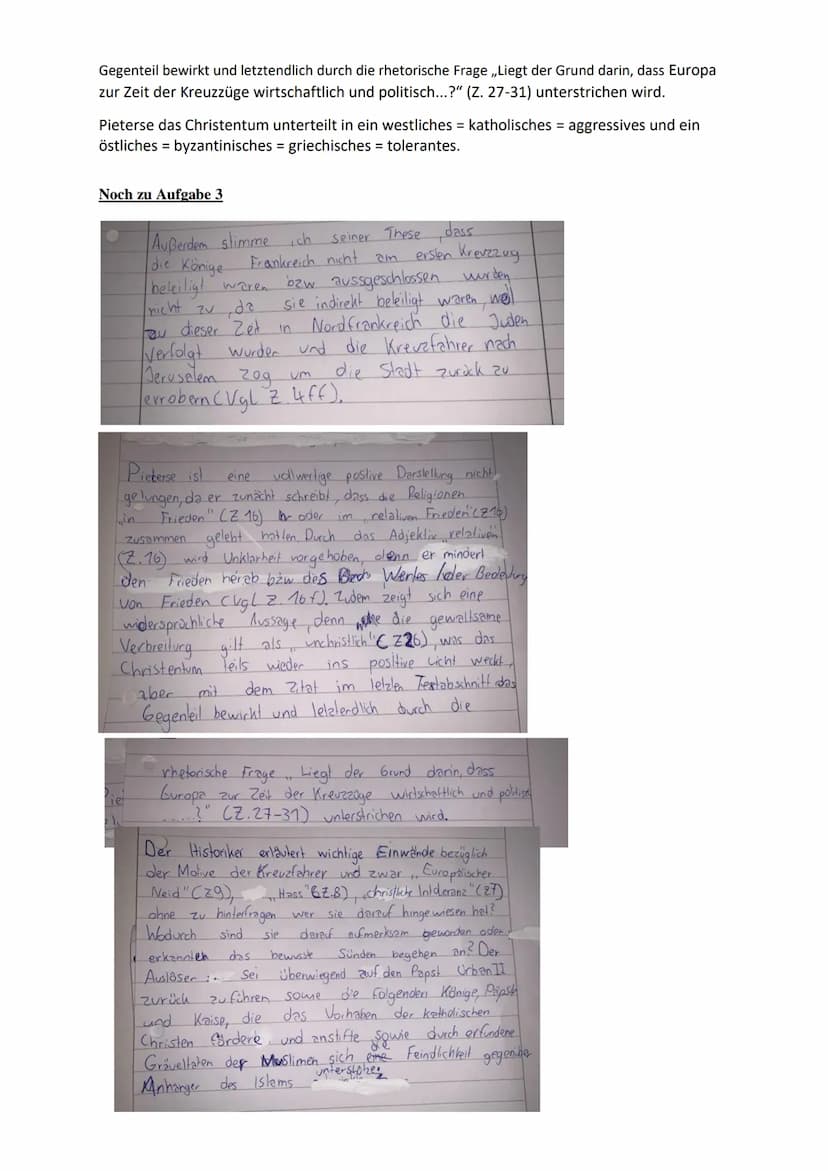 Gegenteil bewirkt und letztendlich durch die rhetorische Frage „Liegt der Grund darin, dass Europa
zur Zeit der Kreuzzüge wirtschaftlich und politisch...?“ (Z. 27-31) unterstrichen wird.
Pieterse das Christentum unterteilt in ein westliches = katholisches = aggressives und ein
östliches = byzantinisches = griechisches = tolerantes.
Noch zu Aufgabe 3
Außerdem stimme ich seiner These, dass
die Könige Frankreich nicht am ersten Kreuzzug
beteiligt waren bzw aussgeschlossen wurden
nicht zu, da sie indirekt beteiligt waren, weil
zu dieser Zeit in Nordfrankreich die Juden
verfolgt wurden und die Kreuzfahrer nach
Jerusalem zog um die Stadt zurück zu
errobern (Vgl Z. 4ff).
Pieterse ist eine vollwertige postive Darstellung nicht
gelungen, da er zunächt schreibt, dass die Religionen
„in Frieden" (Z 16) oder im „relativen Frieden" (Z 16)
zusammen gelebt hatten. Durch das Adjektiv „relativen"
(Z. 16) wird Unklarheit vorgehoben, denn er mindert
den Frieden herab bzw des Wertes / der Bedeutung
von Frieden (Vgl Z. 16 f). Zudem zeigt sich eine
widersprüchliche Aussage, denn die gewaltsame
Verbreitung gilt als „unchristlich" (Z26), was das
Christentum teils wieder ins positive Licht weckt,
aber mit dem Zitat im letzten Textabschnitt das
Gegenteil bewirkt und letztendlich durch die
rhetorische Frage „Liegt der Grund darin, dass
Europa zur Zeit der Kreuzzüge wirtschaftlich und politisch
.....?" (Z. 27-31) unterstrichen wird.
Der Historiker erläutert wichtige Einwände bezüglich
der Motive der Kreuzfahrer und zwar „Europäischer
Neid" (Z9), „Hass" (Z.8), „christliche Intoleranz" (Z7)
ohne zu hinterfragen wer sie darauf hingewiesen hat?
Wodurch sind sie darauf aufmerksam geworden oder
erkannten das bewusste Sünden begehen an? Der
Auslöser : Sei überwiegend auf den Papst Urban II
zurück zu führen sowie die folgenden Könige, Päpste
und Kaise, die das Vorhaben der katholischen
Christen fördere und anstifte sowie durch erfundene
Gräueltaten der Muslimen sich die Feindlichkeit gegenüber
Anhänger des Islams